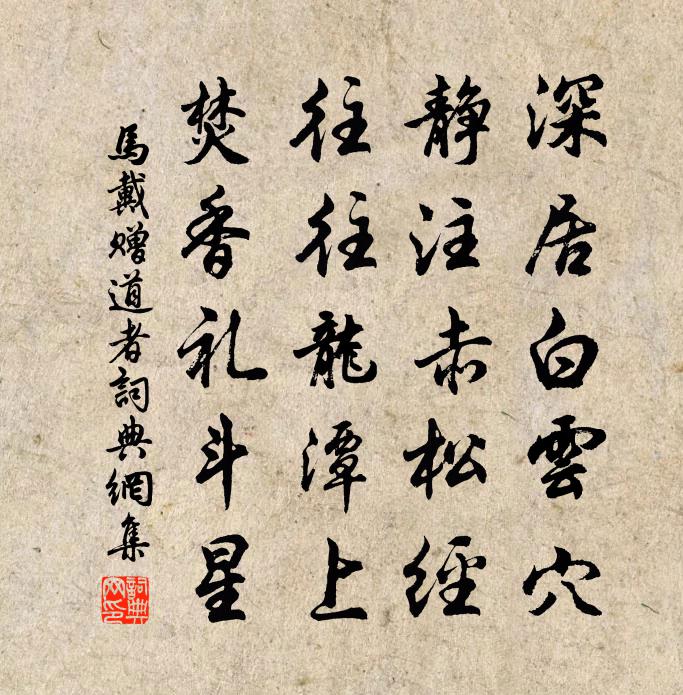 深居白雲穴
静注赤松經
往往龍潭上
焚香礼斗星
馬戴赠道者詞典網集
詞典网印